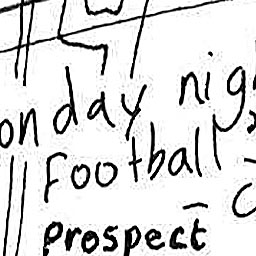 onday nig
Football
Prospect